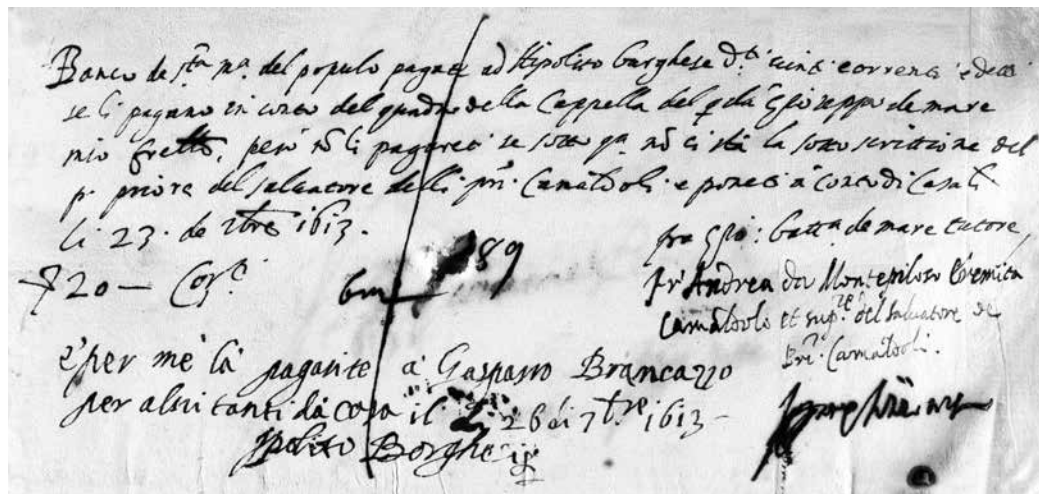 Banco de sta ma. del populo pagate ad Hipolito burghese d.ti vinti correnti e detti
se li pagano in conto del quadro della Cappella del qda Gioseppe de mare
mio fratello, però nō li pagareti se sotto qa. nō ci stà la sotto scrittione del
p. priore del salvatore delli pri. Camaldoli e poneti à conto di
li 23. de 7bre 1613.
fra Gio: Batta de mare tutore
20 — Corti.
89
fr Andrea da Montepiloso Eremita
Camaldolo et supre. del salvatore de
Pri. Camaldoli.
e per me la pagarite à Gasparro Brancazzo
per altri tanti 26 di 7bre 1613
Ipolito Borghese